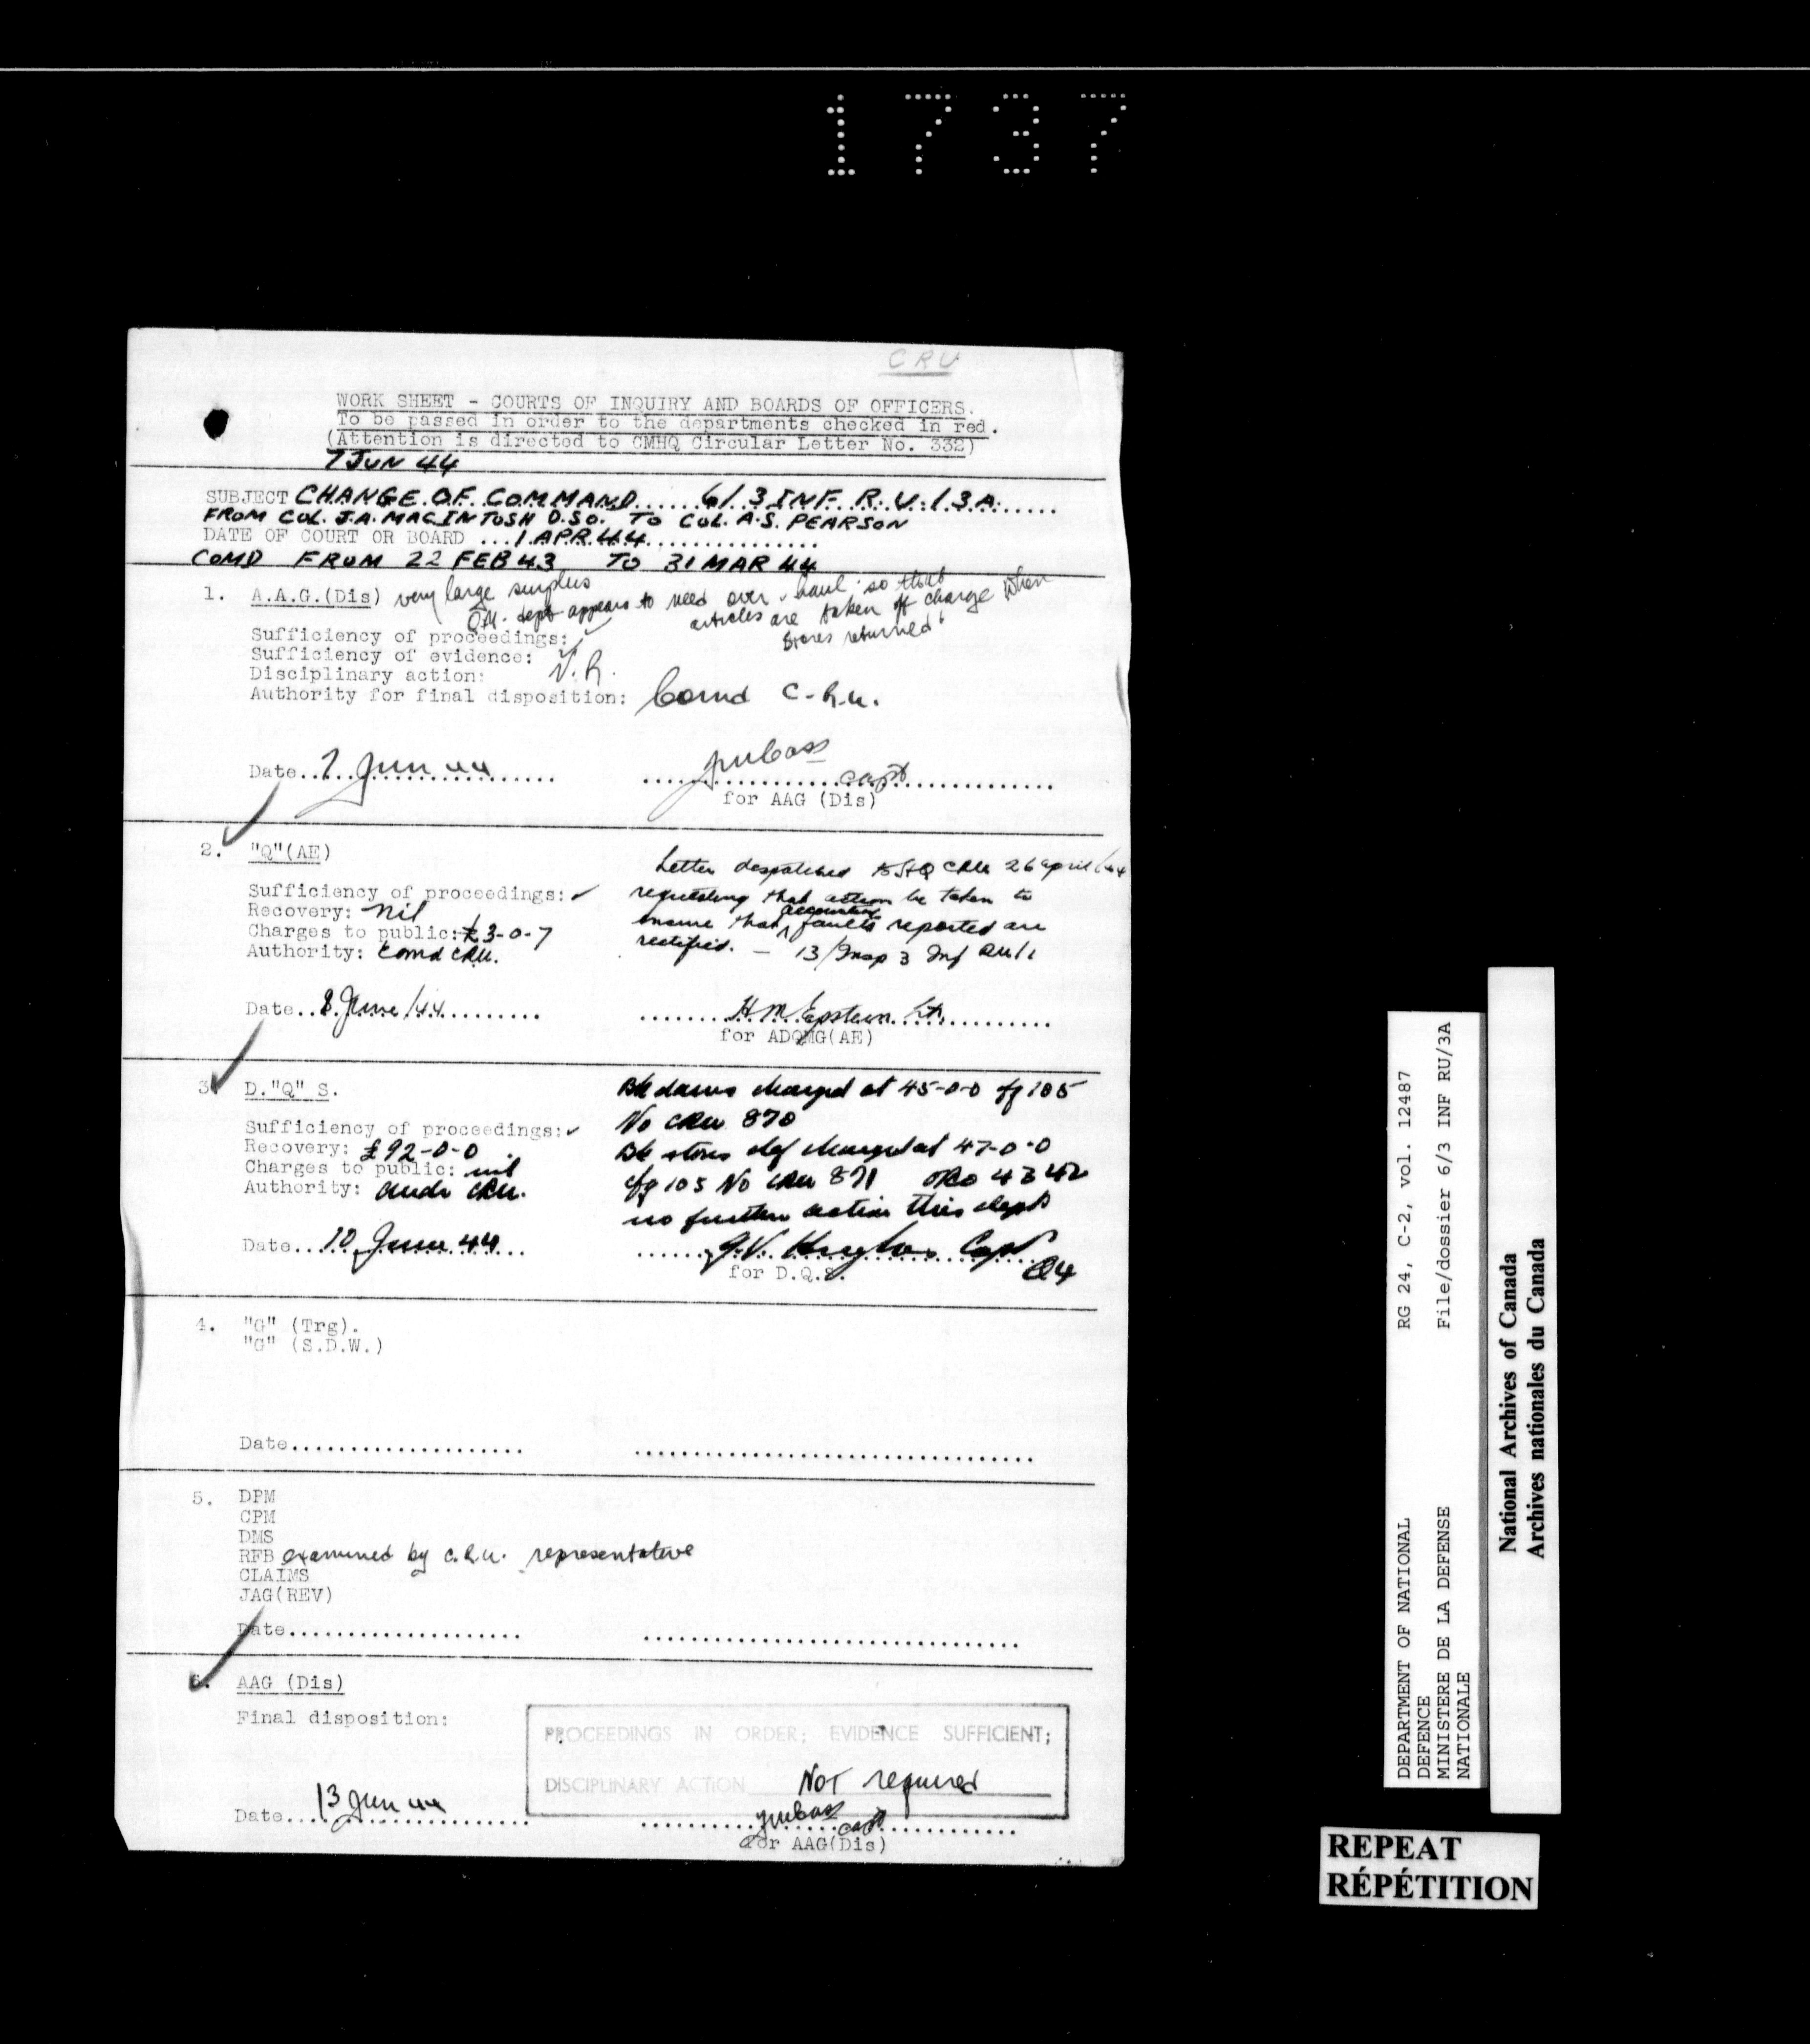 1737
CRU
WORK SHEET - COURTS OF INQUIRY AND BOARDS OF OFFICERS.
To be passed in order to the departments checked in red.
(Attention is directed to CMHQ Circular Letter No. 332)
7 JUN 44
SUBJECT CHANGE OF COMMAND......6/3 INF. R.U./3A......
FROM COL. J.A. MACINTOSH D.SO. TO COL. A.S. PEARSON
DATE OF COURT OR BOARD ...1 APR 44................
COMD FROM 22 FEB 43 TO 31 MAR 44
1. A.A.G.(Dis) very large surplus
Q.M. dept appears to need over-haul so that
articles are taken off charge when
stores returned
Sufficiency of proceedings: ✓
Sufficiency of evidence: ✓
Disciplinary action: N.R.
Authority for final disposition: Comd C.R.U.
Date..7 Jun 44........
capt
for AAG (Dis)
2. "Q"(AE)
Letter despatched to HQ CRU 26 april/44
requesting that action be taken to
ensure that accounting faults reported are
rectified. - 13/Insp 3 Inf RU/1
Sufficiency of proceedings: ✓
Recovery: nil
Charges to public: £3-0-7
Authority: Comd CRU.
Date..8 June/44..........
H M Epstein Lt.
for ADQMG(AE)
3. D."Q" S.
Bk dams charged at 45-0-0 qf 105
No CRU 870
Bk stores def charged at 47-0-0
qf 105 No CRU 871 ORO 4342
no further action this dept
Sufficiency of proceedings: ✓
Recovery: £92-0-0
Charges to public: nil
Authority: CRU.
Date...10 June 44...
G.V. Hughes Capt
for D.Q.S. Q4
4. "G" (Trg).
"G" (S.D.W.)
Date....................
5. DPM
CPM
DMS
RFB examined by C.R.U. representative
CLAIMS
JAG(REV)
Date....................
6. AAG (Dis)
Final disposition:
PROCEEDINGS IN ORDER; EVIDENCE SUFFICIENT;
DISCIPLINARY ACTION NOT required
Date...13 Jun 44...........
capt
for AAG(Dis)
DEPARTMENT OF NATIONAL DEFENCE
MINISTERE DE LA DEFENSE NATIONALE
RG 24, C-2, vol. 12487
File/dossier 6/3 INF RU/3A
National Archives of Canada
Archives nationales du Canada
REPEAT
RÉPÉTITION